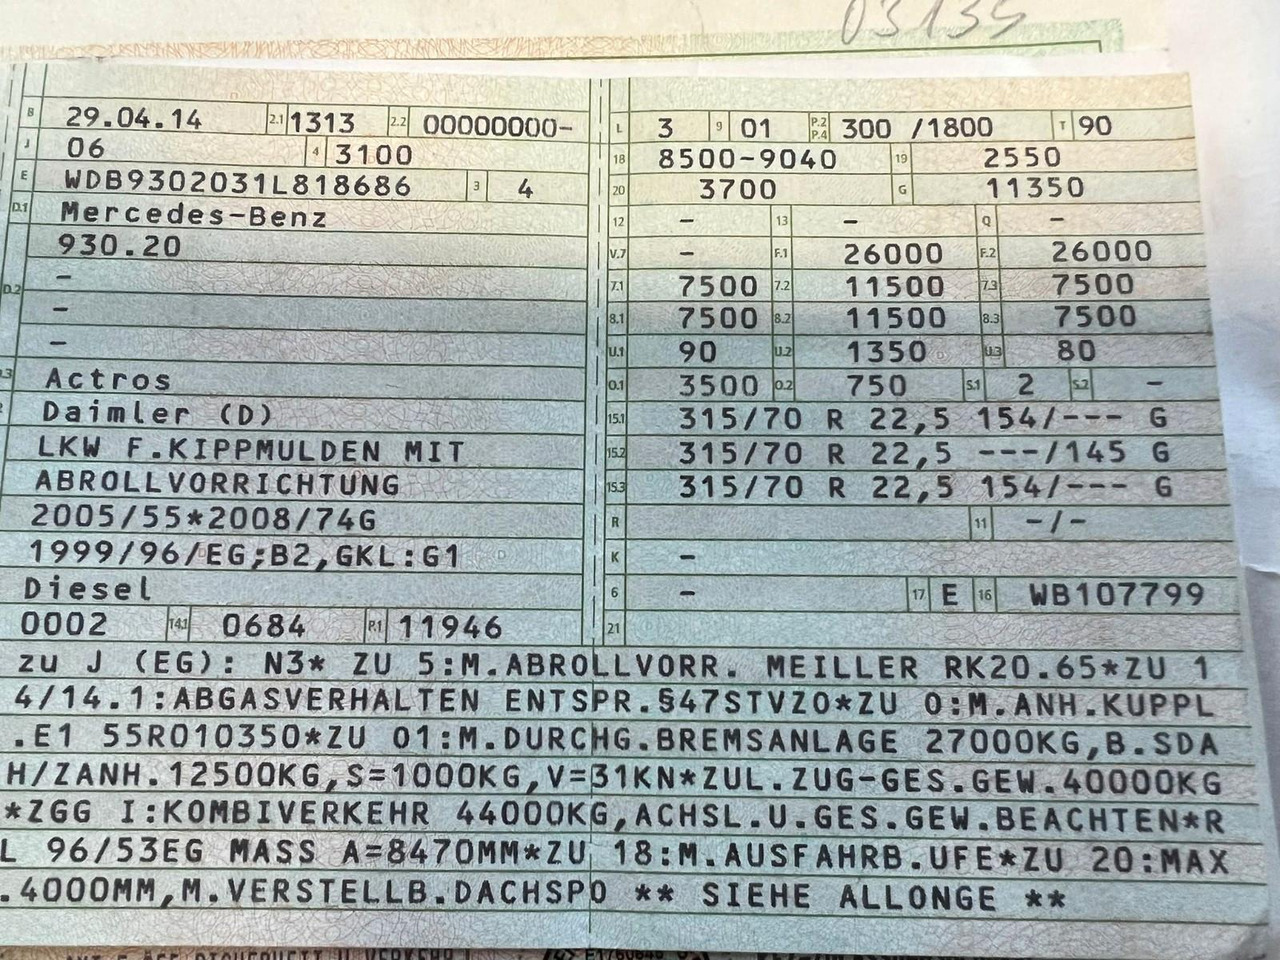 03135
B 29.04.14 2.1 1313 2.2 00000000-
J 06 4 3100
E WDB9302031L818686 3 4
D.1 Mercedes-Benz
930.20
D.2 -
-
-
.3 Actros
2 Daimler (D)
LKW F.KIPPMULDEN MIT
ABROLLVORRICHTUNG
2005/55*2008/74G
1999/96/EG;B2,GKL:G1
Diesel
0002 14.1 0684 P.1 11946
L 3 9 01 P.2 P.4 300 /1800 T 90
18 8500-9040 19 2550
20 3700 G 11350
12 - 13 - Q -
V.7 - F.1 26000 F.2 26000
7.1 7500 7.2 11500 7.3 7500
8.1 7500 8.2 11500 8.3 7500
U.1 90 U.2 1350 U.3 80
O.1 3500 O.2 750 S.1 2 S.2 -
15.1 315/70 R 22,5 154/--- G
15.2 315/70 R 22,5 ---/145 G
15.3 315/70 R 22,5 154/--- G
R 11 -/-
K -
6 - 17 E 16 WB107799
21
zu J (EG): N3* ZU 5:M.ABROLLVORR. MEILLER RK20.65*ZU 1
4/14.1:ABGASVERHALTEN ENTSPR.§47STVZO*ZU O:M.ANH.KUPPL
.E1 55R010350*ZU O1:M.DURCHG.BREMSANLAGE 27000KG,B.SDA
H/ZANH.12500KG,S=1000KG,V=31KN*ZUL.ZUG-GES.GEW.40000KG
*ZGG I:KOMBIVERKEHR 44000KG,ACHSL.U.GES.GEW.BEACHTEN*R
L 96/53EG MASS A=8470MM*ZU 18:M.AUSFAHRB.UFE*ZU 20:MAX
.4000MM,M.VERSTELLB.DACHSPO ** SIEHE ALLONGE **